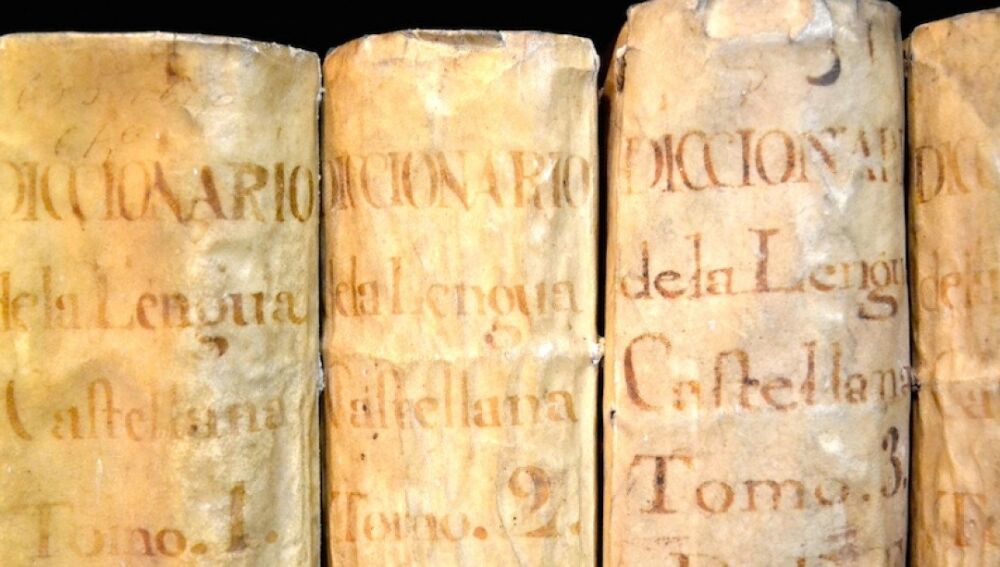 DICCIONARIO
de la Lengua
Caſtellana
Tomo. 1.
DICCIONARIO
dela Lengua
Caſtellana
Tomo. 2.
DICCIONARI
dela Lengu
Caſtellana
Tomo. 3.
DICC
dela
Caſ
T.